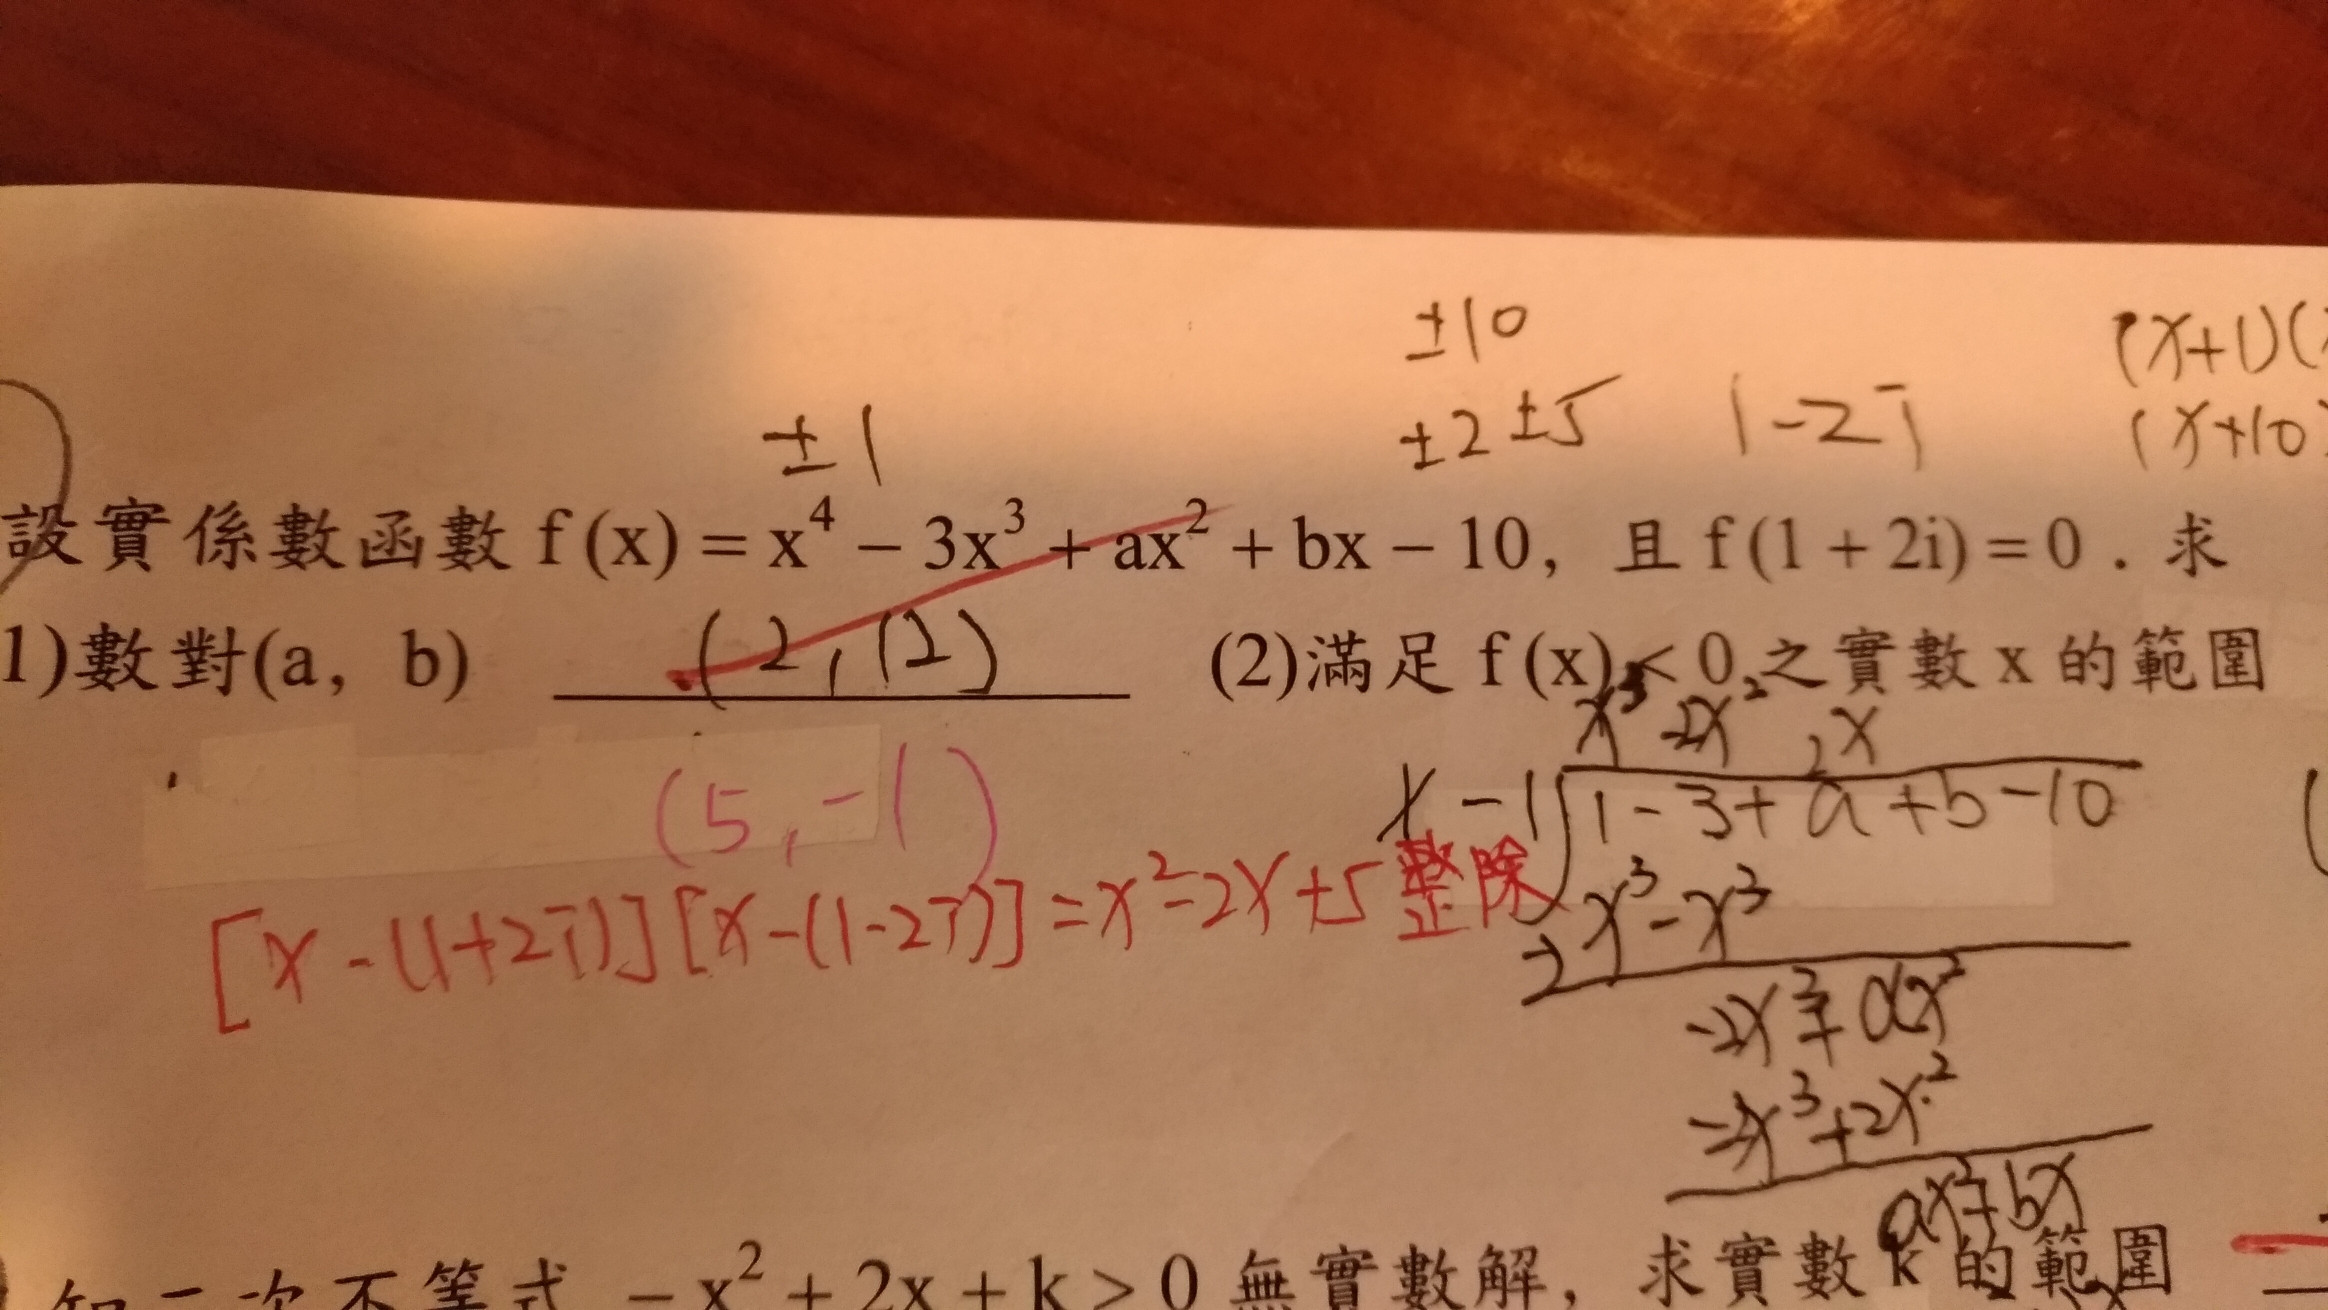 ±10
±1 ±2 ±5 1-2i (x+1)(
(x+10
設實係數函數 f (x) = x⁴ − 3x³ + ax² + bx − 10, 且 f (1 + 2i) = 0 . 求
1)數對(a, b) (2, 12) (2)滿足 f (x) < 0 之實數 x 的範圍
x³ -2x² 2x
(5, -1)
x-1 1-3+a+b-10
[x-(1+2i)][x-(1-2i)]=x²-2x+5 整除
x³-x³
-2x³+ax²
-2x³+2x²
ax²+bx
知二次不等式 − x² + 2x + k > 0 無實數解, 求實數 k 的範圍